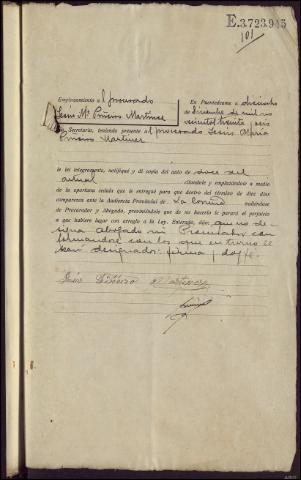 E.3.723.945
101
Emplazamiento a l procesado
Jesús Mª Piñeiro Martínez
En Puentedeume a dieciocho
de diciembre de mil no
vecientos treinta y seis
Secretario, teniendo presente a l procesado Jesús María
Piñeiro Martínez
le leí íntegramente, notifiqué y dí copia del auto de doce del
actual citándole y emplazándole a medio
de la oportuna cédula que le entregué para que dentro del término de diez días
comparezca ante la Audiencia Provincial de La Coruña valiéndose
de Procurador y Abogado, previniéndole que de no hacerlo le parará el perjuicio
a que hubiere lugar con arreglo a la Ley. Enterado, dijo: que no de-
signa abogado ni Procurador con
formandose con los que en turno le
sean designados: firma y doy fe.
Jesús Piñeiro Martínez